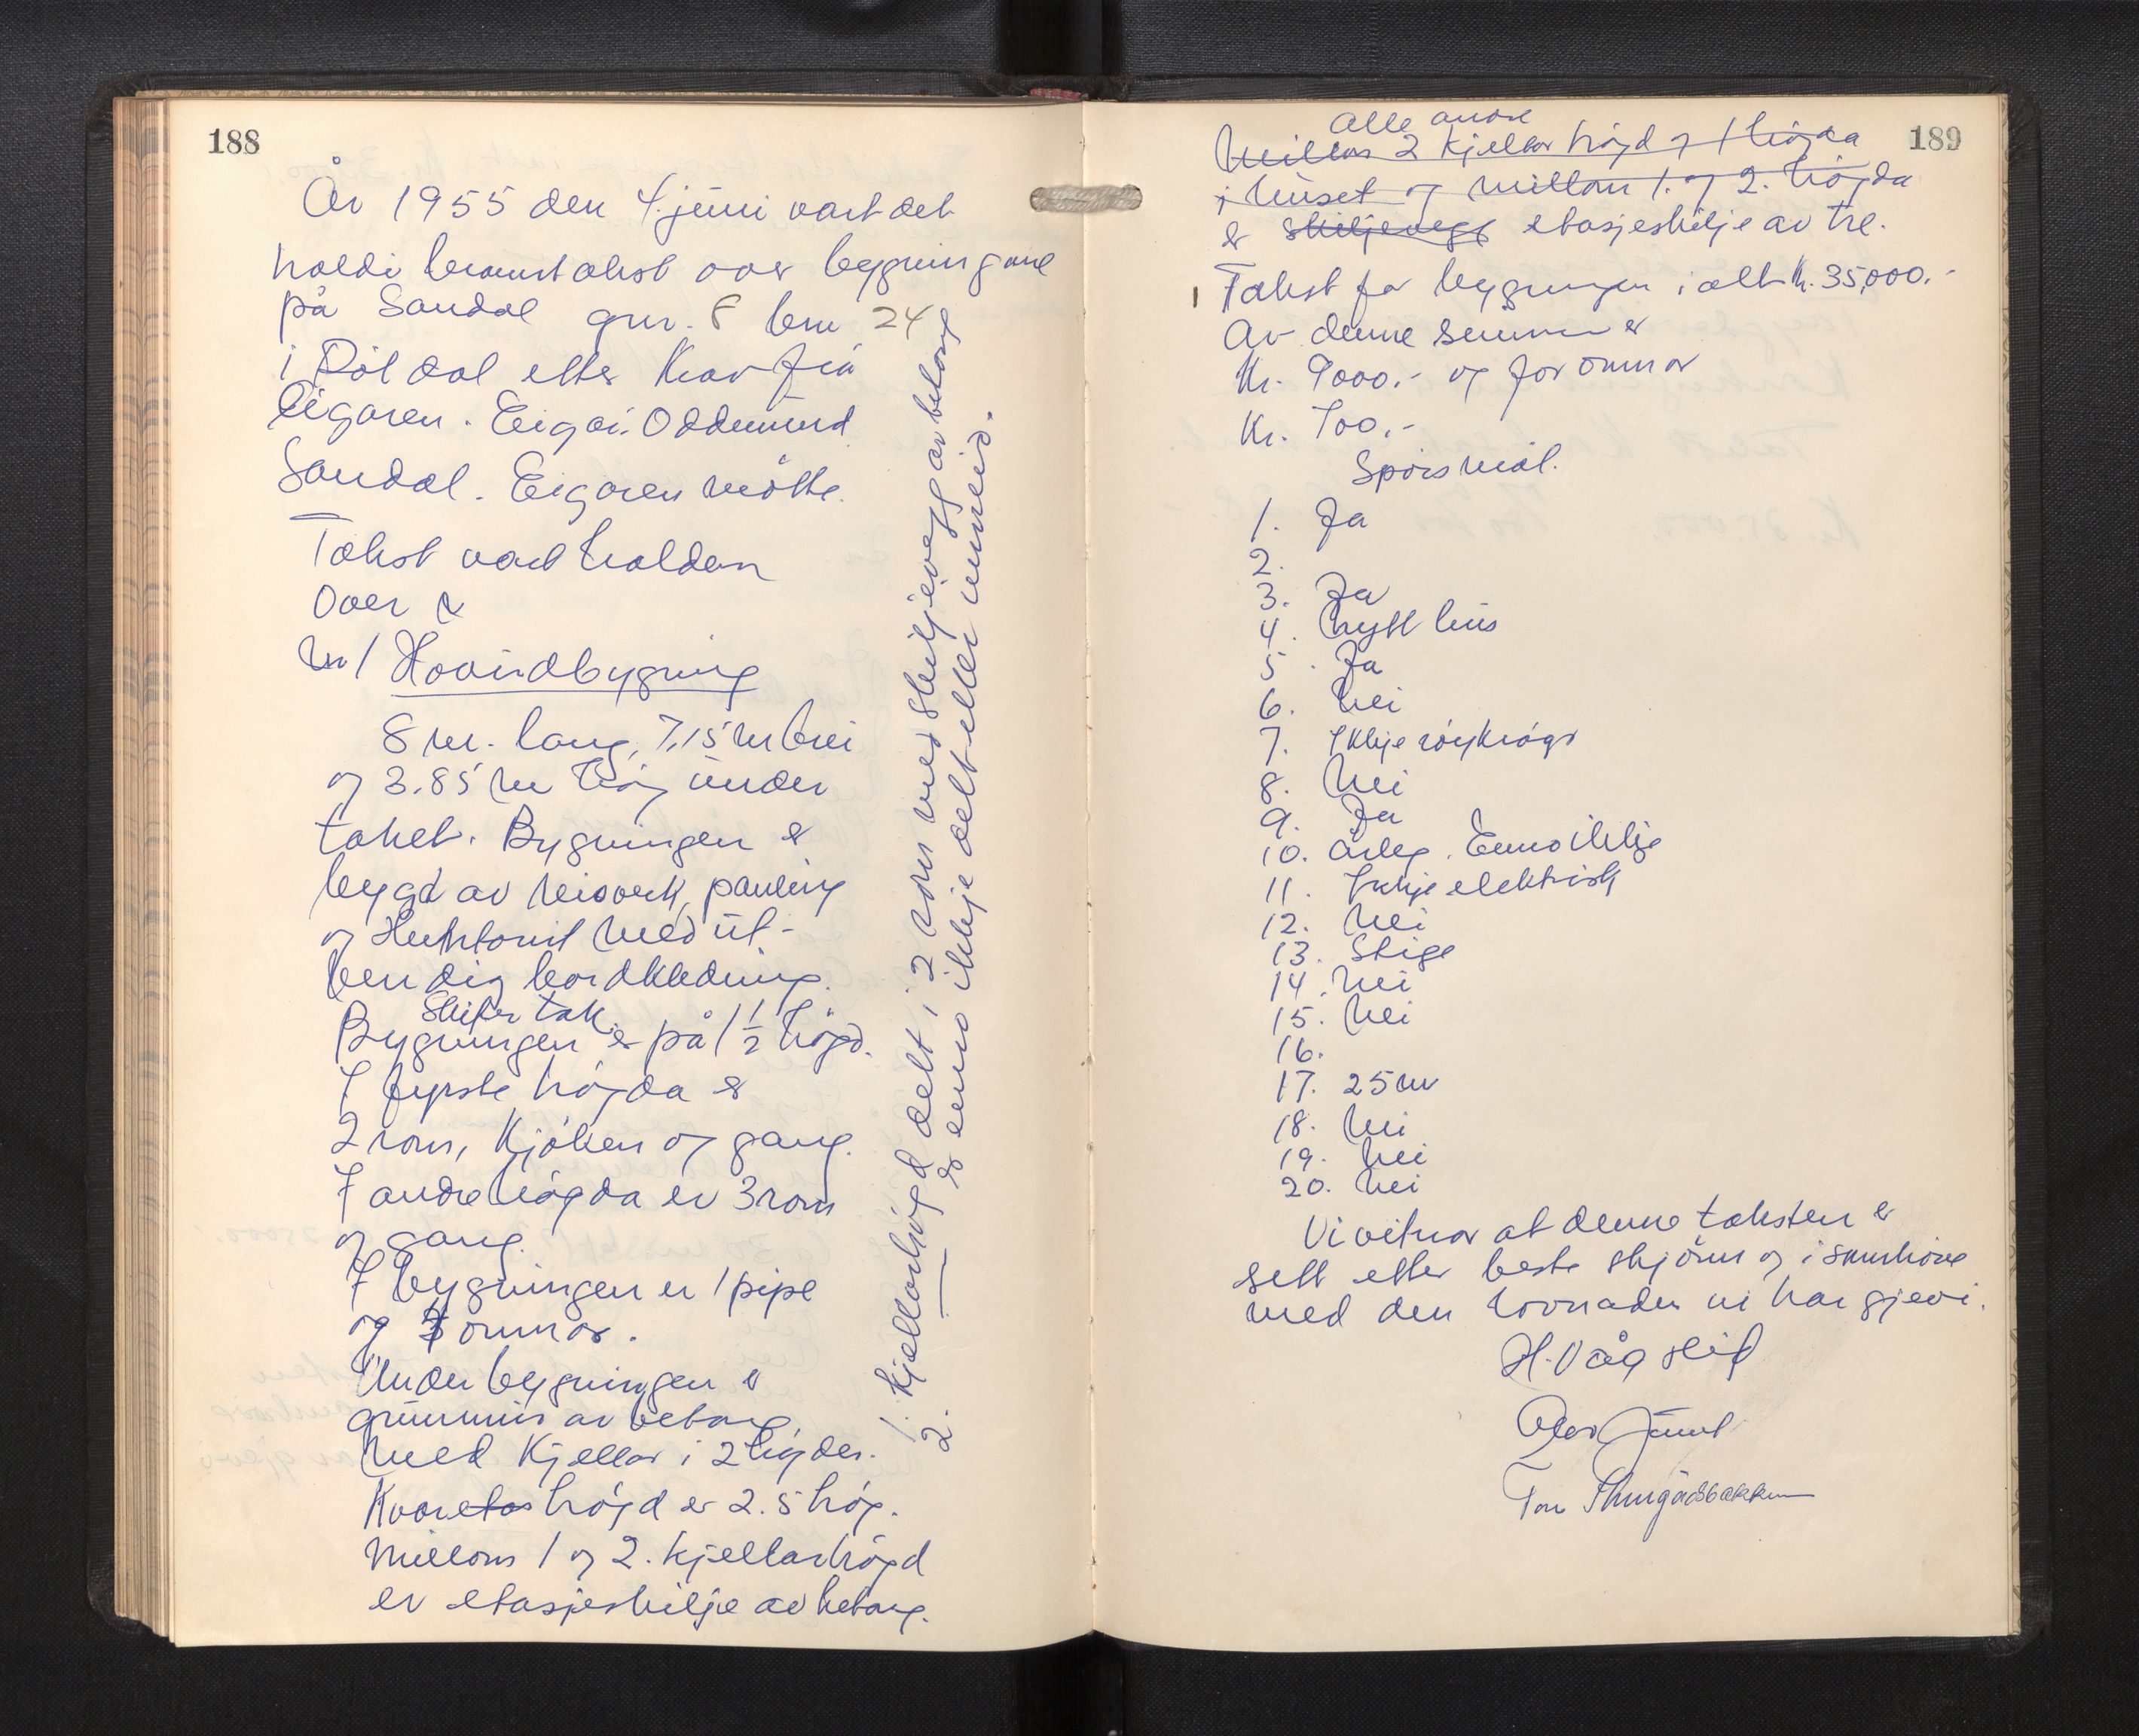 188
År 1955 den 4. juni vart det
haldi brannstakst over bygningane
på Sandal gnr. 8 bnr 24
i Röldal etter Krav frå
Eigaren. Eigar: Oddmund
Sandal. Eigaren mötte.
Takst vart halden
Over
Nr/ Hovudbygning
8 m. lang, 7,15 m brei
og 3.85 m høg under
taket. Bygningen er
bygd av reisverk, paneling
og Huntonit med ut-
vendig bordkledning.
Skifer tak.
Bygningen er på 1 1/2 høgd.
I fyrste høgda er
2 rom, Kjøken og gang.
I andre høgda er 3 rom
og gang.
I bygningen er 1 pipe
og 3 omnar.
Under bygningen er
grunnmur av betong
med Kjellar i 2 høgder.
Kvar høgd er 2.5 høg.
Millom 1 og 2. kjellarhøgd
er etasjeskilje av betong.
1. Kjellarhögd delt i 2 rom med skiljevegg av betong
2. — er enno ikkje delt eller innreid.
189
alle andre
Millom 2 Kjellar høgd og 1 høgda
i huset og millom 1. og 2. høgda
er skiljevegg etasjeskilje av tre.
1 Takst for bygningen i alt kr. 35,000.-
Av denne summen er
Kr. 9000.- og for omnar
Kr. 700.-
Spörsmål.
1. Ja
2.
3. Ja
4. Nytt hus
5. Ja
6. Nei
7. Ikkje röykrögr
8. Nei
9. Ja
10. Årleg. Enno ikkje
11. Ikkje elektrisk
12. Nei
13. Stige
14. Nei
15. Nei
16.
17. 25 m
18. Nei
19. Nei
20. Nei
Vi vitnar at denne taksten er
sett etter beste skjönn og i samhöve
med den lovnaden vi har gjevi.
H. Vågslid